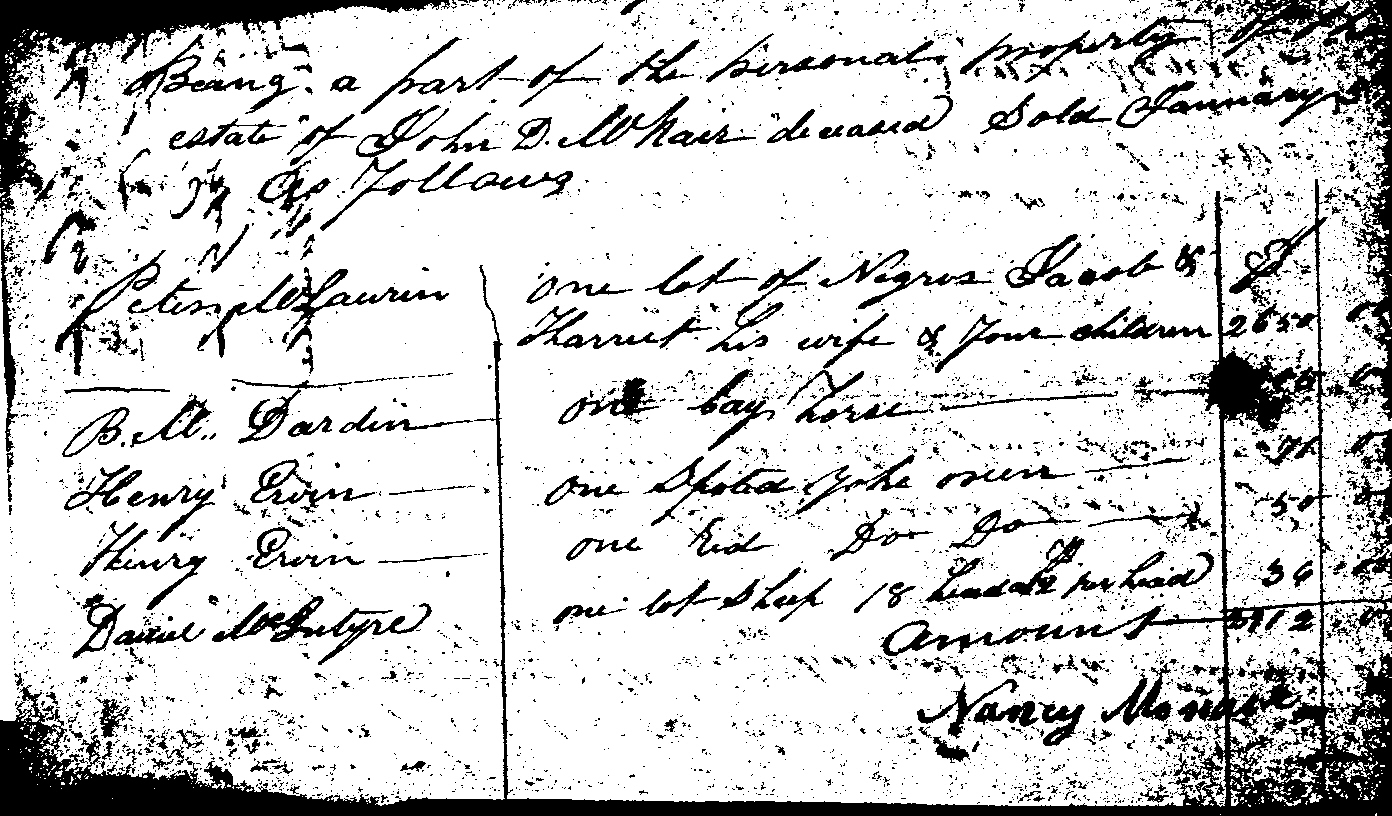 Being a part of the personal property of the
estate of John D. McNair deceased Sold January
As Follows
Peter McLaurin one lot of Negros Jacob & $
Harriet his wife & Four children 2650 00
B. M. Dardin one bay horse 00
Henry Ervin one Spoted yoke oxen
Henry Ervin one Red Do Do 50
Daniel McIntyre one lot Sheep 18 head at $2 per head 36 .00
Amount 2912.
Nancy McNair